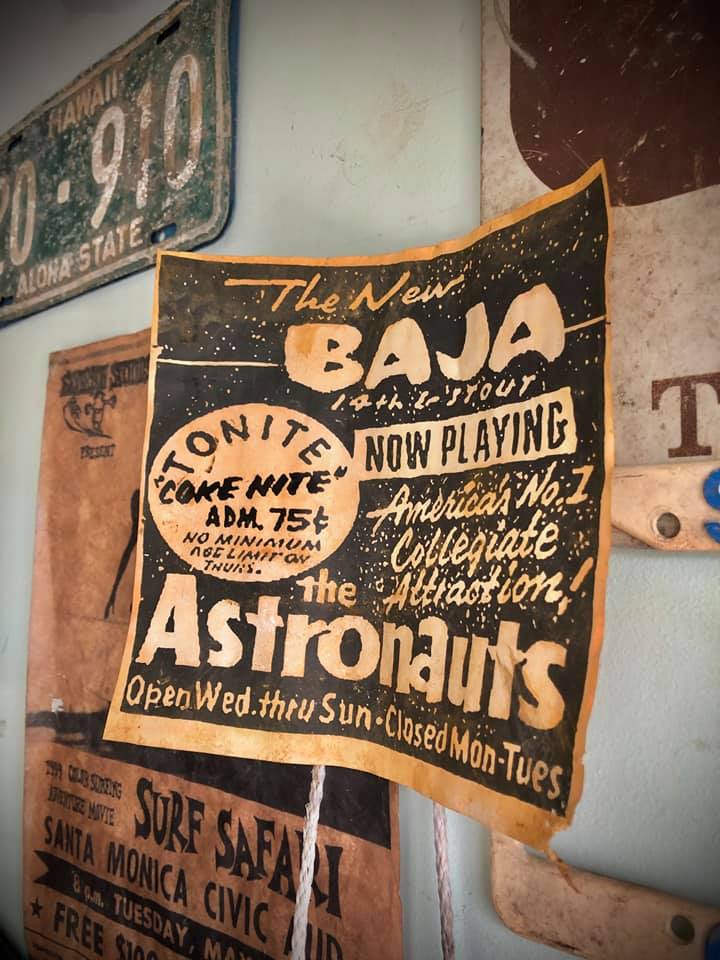 HAWAII
0·910
ALOHA STATE
The New
BAJA
14th & STOUT
NOW PLAYING
"TONITE"
"COKE NITE"
ADM. 75¢
NO MINIMUM
AGE LIMIT ON
THURS.
America's No. 1
Collegiate
Attraction!
the
Astronauts
Open Wed. thru Sun • Closed Mon-Tues
PRESENT
1959 COLOR SURFING
ADVENTURE MOVIE
SURF SAFARI
SANTA MONICA CIVIC AUD
8 p.m. TUESDAY, MAY
★ FREE $100
T